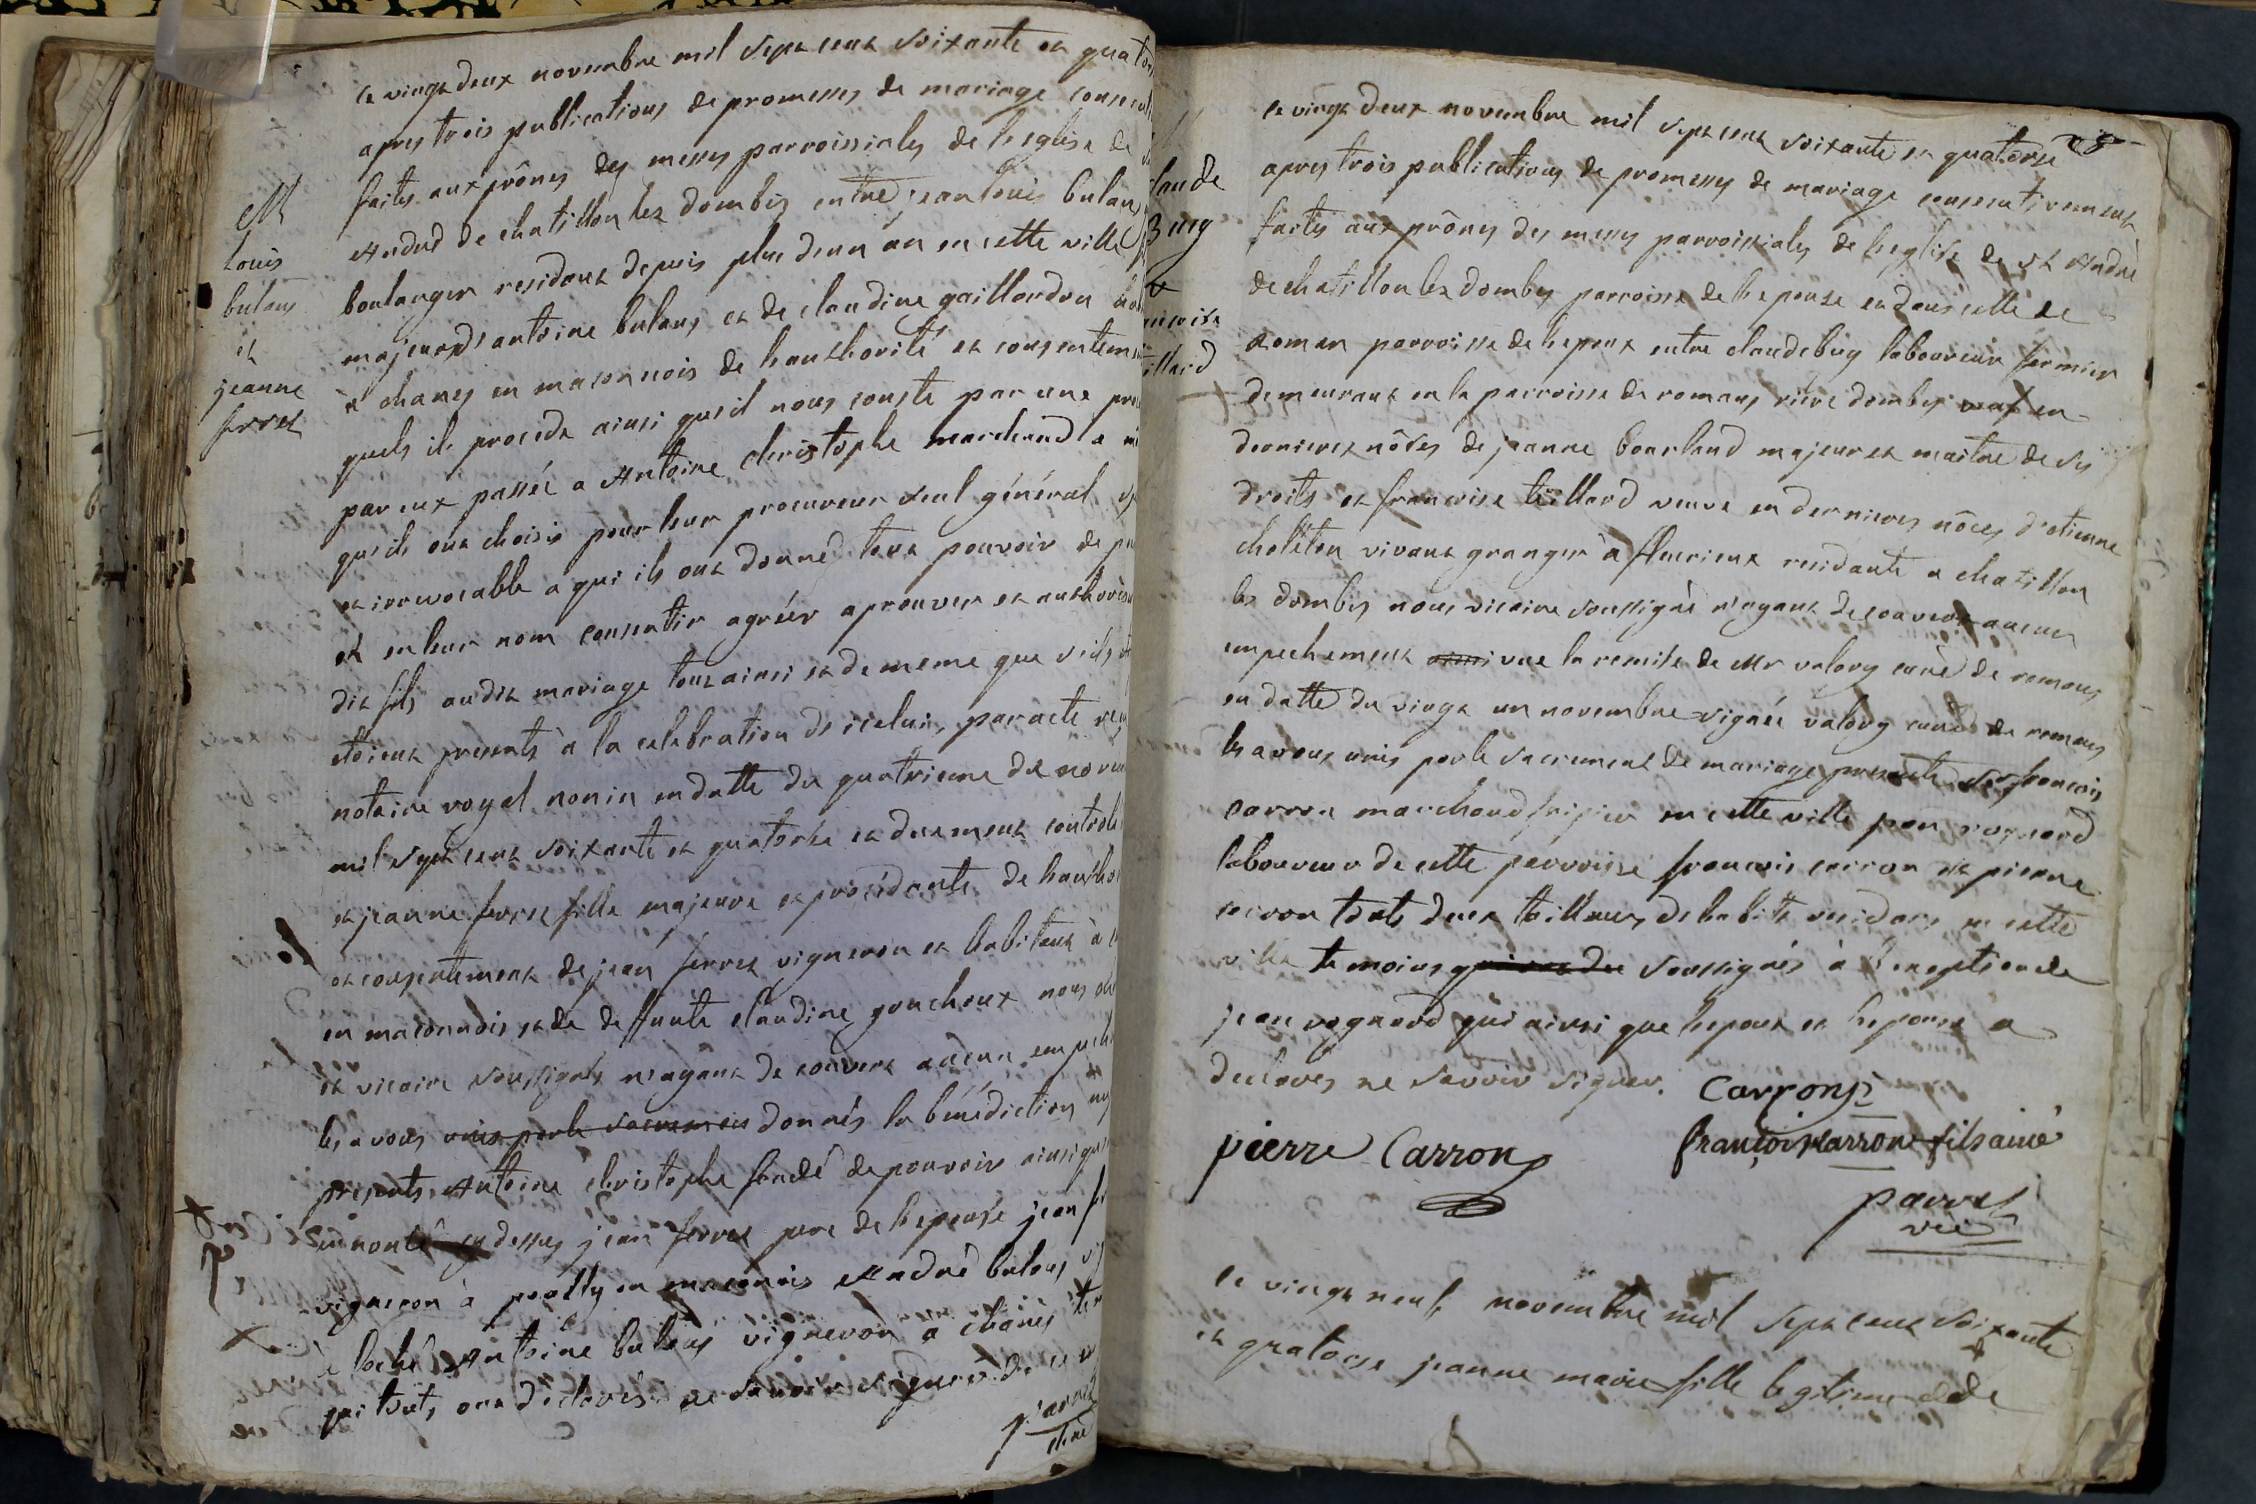 le vingt deux novembre mil sept cent soixante et quator
apres trois publications de promesses de mariage consecuti
faites aux prônes des messes parroissiales de l'eglise de
André de chatillon lez dombes entre jean louis bulans
boulanger residant depuis plus d'un án en cette ville
majeur d'antoine bulans et de claudine gaillardon
a chanes en maconnois de l'authorité et consentem
quels il procede ainsi qu'il nous conste par une pro
par eux passée a Antoine christophe marchand a
qu'ils ont choisis pour leur procureur seul général
et irrevocable a qui ils ont donné tout pouvoir de
et en leur nom consentir agréer aprouver et authoris
dit fils audit mariage tout ainsi et de meme que s'ils
etoient presents à la celebration d'icelui, par acte
notaire royal nonin en datte du quatrieme de novem
mil sept cent soixante et quatorze et duement controlé
et jeanne ferret fille majeure et procédante de l'autho
et consentement de jean ferret vigneron et habitant à
en maconnois et de deffunte claudine goucheux nous
et vicaire soussignés n'ayant decouvert aucun empeche
les avons unis par le sacrement donnés la bénédiction
presents Antoine christophe fondé de pouvoir ainsi qu
enoncé cy dessus jean ferret pere de l'epouse jean
vigneron à pouilly en maconnois André bulans
à loché Antoine bulans vigneron a chanes
qui touts ont declarés ne savoir signer de ce
M
louis
bulans
et
jeanne
ferret
laude
Buy
ancoise
illard
28
le vingt deux novembre mil sept cent soixante et quatorse
apres trois publications de promesses de mariage consecutivement
faites aux prônes des messes parroissiales de l'eglise de st André
de chatillon les dombes parroisse de l'epouse en dans celle de
Roman parroisse de l'epoux entre claude buy laboureur fermier
demeurant en la parroisse de romans rière dombes veuf en
dernieres nôces de jeanne bourland majeur et maitre de ses
droits et francoise teillard veuve en dernieres nôces d'etienne
choleton vivant granger à fleurieux residante a chatillon
les dombes nous vicaire soussigné n'ayant decouvert aucun
empechement vue la remise de Mr valory curé de romans
en datte du vingt un novembre signée valory curé de romans
les avons unis par le sacrement de mariage presents sr francois
carron marchand fripier en cette ville jean rognard
laboureur de cette parroisse francois carron et pierre
carron touts deux tailleurs d'habits residans en cette
ville temoins soussignés à l'exception de
jean rognard qui ainsi que l'epoux et l'epouse a
declarés ne savoir signer. Carron
pierre Carron françois carron fils ainé
parret
vic
le vingt neuf novembre mil sept cent soixante
et quatorse jeanne marie fille legitime de